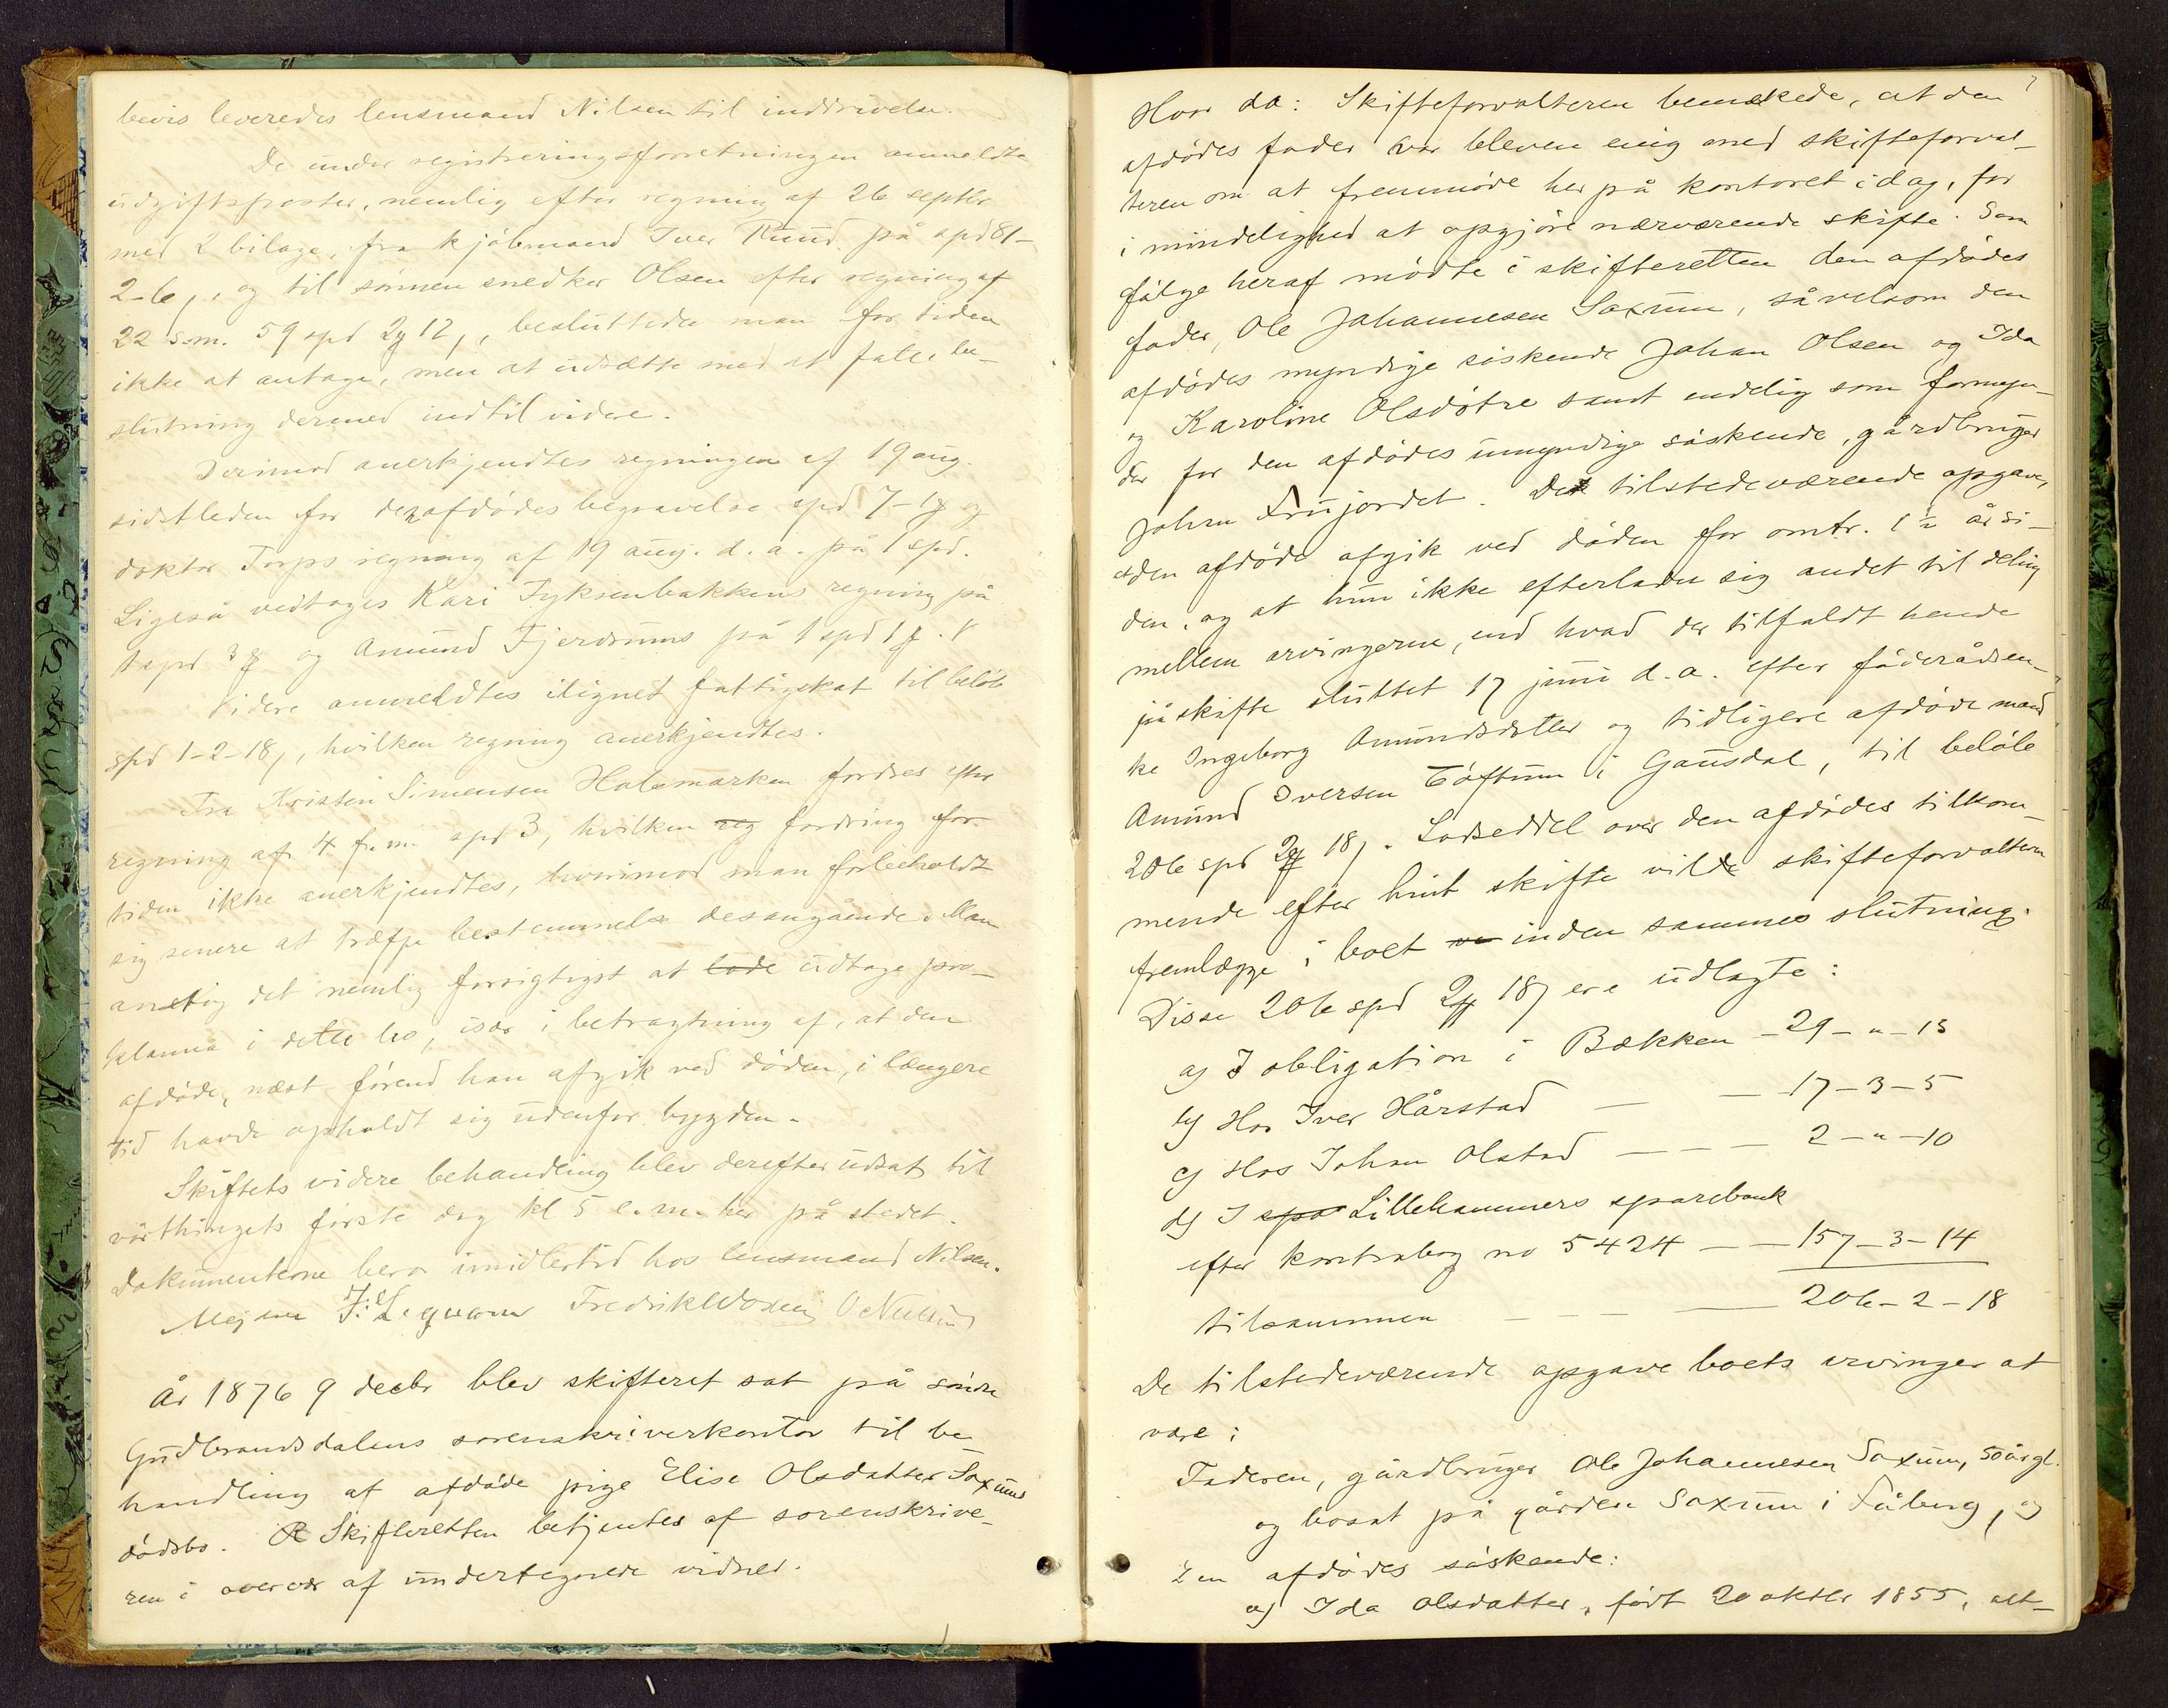 bevis leveredes lensmand Nilsen til inddrivelse.
De under registreringsforretningen anmeldte
udgiftsposter, nemlig efter regning af 26 septbr
med 2 bilage, fra kjøbmand Iver Ruud på spd 81-
2-6, og til sönnen snedker Olsen efter regning af
22 s.m. 59 spd 2 12, besluttede man for tiden
ikke at antage, men at udsætte med at fatte be-
slutning dermed indtil videre.
Derimod anerkjendtes regningen af 19 aug.
sidstleden for den afdødes begravelse spd 7-1 og
doktor Torps regning af 19 aug. d.a. på 1 spd.
Ligeså vedtoges Kari Fyksenbakkens regning på
1 spd 3 og Amund Fjerdrums på 1 spd 1.
Videre anmeldtes ilignet fattigskat til beløb
spd 1-2-18, hvilken regning anerkjendtes.
Fra Kristen Simensen Holsmarken fordres efter
regning af 4 f.m. spd 3, hvilken reg fordring for
tiden ikke anerkjendtes, hvorimod man forbeholdt
sig senere at træffe bestemmelse desangående. Man
antog det nemlig forsigtigst at lade udtage pro-
klama i dette bo, især i betragtning af, at den
afdøde, næst förend han afgik ved døden, i længere
tid havde opholdt sig udenfor bygden.
Skiftets videre behandling blev derefter udsat til
vårthingets förste dag kl 5 e.m. her på stedet.
Dokumenterne bero imidlertid hos lensmand Nilsen.
År 1876 9 decbr blev skifteret sat på söndre
Gudbrandsdalens sorenskriverkontor til be
handling af afdøde pige Elise Olsdatter Saxums
dødsbo. R Skifteretten betjentes af sorenskrive-
ren i overvær af undertegnede vidner.
Hvor da: Skifteforvalteren bemærkede, at den
afdødes fader var bleven enig med skifteforval-
teren om at fremmöde her på kontoret idag, for
i mindelighed at opgjöre nærværende skifte. Som
fölge heraf mödte i skifteretten den afdödes
fader, Ole Johannesen Saxum, såvelsom den
afdödes myndige söskende Johan Olsen og Ida
og Karoline Olsdötre samt endelig som formyn-
der for den afdödes umyndige söskende, gårdbruger
Johan Frujordet. De tilstedeværende opgave,
at den afdöde afgik ved döden for omtr. 1 ½ år si-
den, og at hun ikke efterlader sig andet til deling
mellem arvingerne, end hvad der tilfaldt hende
på skifte sluttet 17 juni d.a. efter föderådsen-
ke Ingeborg Amundsdatter og tidligere afdöde mand
Amund Iversen Töftum i Gausdal, til belöb
206 spd 2 18. Lodseddel over den afdödes tilkom-
mende efter hint skifte vilde skifteforvalteren
fremlægge i boet ve inden sammes slutning.
Disse 206 spd 2 18 ere udlagte:
a) I obligation i Bækken - 29 - " - 13
b) Hos Iver Hårstad — — 17 - 3 - 5
c) Hos Johan Olstad — — — 2 - " - 10
d) I spa Lillehammers sparebank
efter kontrabog no 5424 — — 157 - 3 - 14
tilsammen — — — 206 - 2 - 18
De tilstedeværende opgave boets arvinger at
være:
Faderen, gårdbruger Ole Johannesen Saxum, 50 årgl.
og bosat på gården Saxum i Fåberg, og
Den afdödes söskende:
a) Ida Olsdatter, födt 20 oktbr 1855, alt-